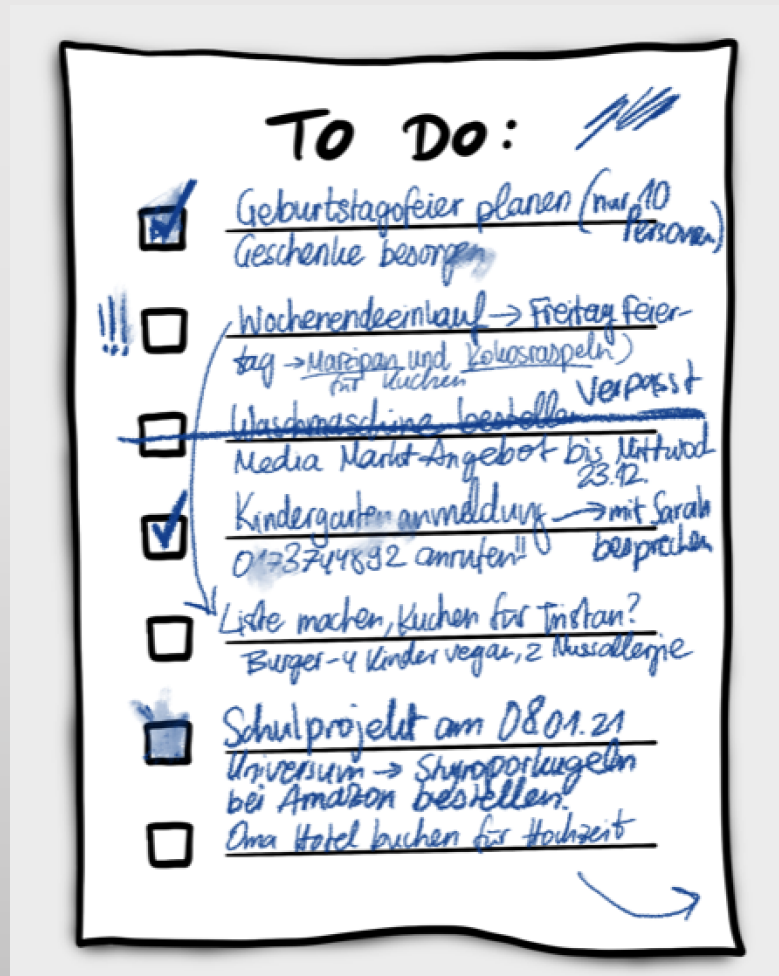 To Do:
Geburtstagsfeier planen (nur 10
Personen)
Geschenke besorgen
!!! Wochenendeeinkauf → Freitag Feier-
tag → Marzipan und Kokosraspeln)
für Kuchen
Waschmaschine bestellen verpasst
Media Markt-Angebot bis Mittwoch
23.12.
Kindergartenanmeldung → mit Sarah
besprechen
0173744892 anrufen!!
Liste machen, Kuchen für Tristan?
Burger-4 Kinder vegan, 2 Nussallergie
Schulprojekt am 08.01.21
Universum → Styroporkugeln
bei Amazon bestellen!
Oma Hotel buchen für Hochzeit